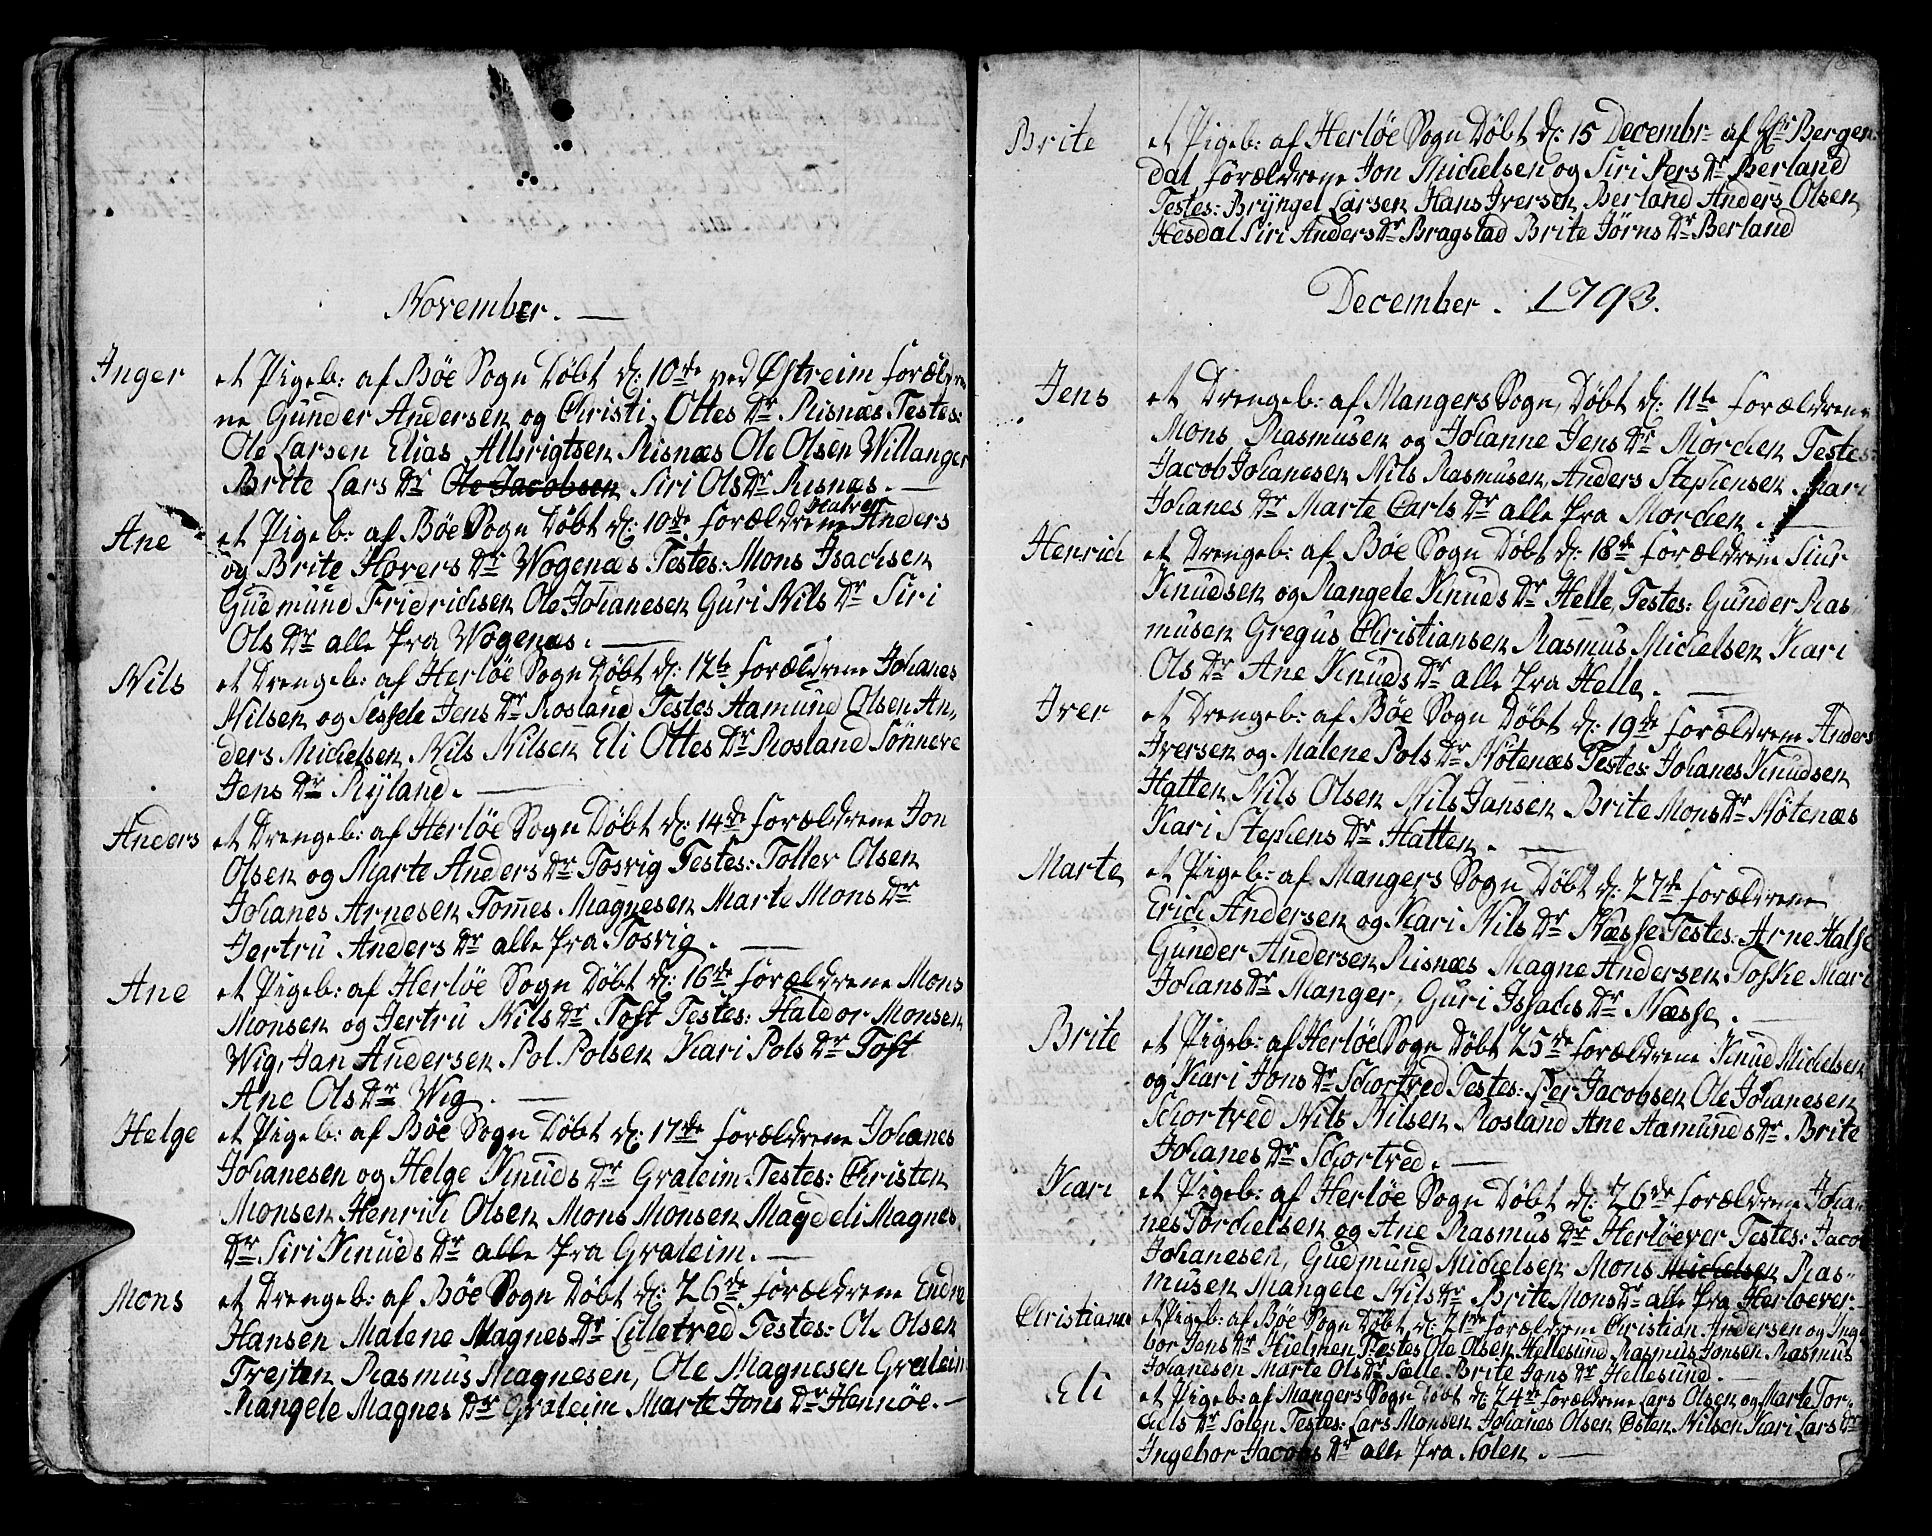 November. —
Inger
et Pigeb: af Böe Sogn Döbt d: 10de ved Østreim forældre
ne Gunder Andersen og Christi Ottes Dr Risnæs Testes:
Ole Larsen Elias Albrigtsen Risnæs Ole Olsen Willanger
Brite Lars Dr Ole Jacobsen Siri Ols Dr Risnæs. —
Ane
et Pigeb: af Böe Sogn Döbt d: 10de forældrene Anders
og Brite Hovers Dr Wogenæs Testes: Mons Isachsen
Gudmund Fridrichsen Ole Johanesen Guri Nils Dr Siri
Ols Dr alle fra Wogenæs. —
Nils
et Drengeb: af Herlöe Sogn Döbt d: 12te forældrene Johanes
Nilsen og Sessele Jens Dr Rosland Testes Aamund Olsen An,
ders Michelsen Nils Nilsen Eli Ottes Dr Rosland Sönneve
Jens Dr Ryland. —
Anders
et Drengeb: af Herlöe Sogn Döbt d: 14de forældrene Jon
Olsen og Marte Anders Dr Tosvig Testes: Tollev Olsen
Johanes Arnesen Tommes Magnesen Marte Mons Dr
Jertru Anders Dr alle fra Tosvig. —
Ane
et Pigeb: af Herlöe Sogn Döbt d: 16de forældrene Mons
Monsen og Jertru Nils Dr Toft Testes: Haldor Monsen
Wig, Jan Andersen Pol Polsen Kari Pols Dr Toft
Ane Ols Dr Wig. —
Helge
et Pigeb: af Böe Sogn Döbt d: 17de forældrene Johanes
Johanesen og Helge Knuds Dr Graleim Testes: Christen
Monsen Henrich Olsen Mons Monsen Magdeli Magnes
Dr Siri Knuds Dr alle fra Graleim. —
Mons
et Drengeb: af Böe Sogn Döbt d: 26de forældrene Endre
Hansen Malene Magnes Dr Lilletved Testes: Ole Olsen
Trejten Rasmus Magnesen, Ole Magnesen Graleim
Rangele Magnes Dr Graleim Marte Jons Dr Hennöe. —
Brite
et Pigeb: af Herlöe Sogn Döbt d: 15 Decembr af Hr Bergen
dal forældrene Jon Michelsen og Siri Pers Dr Berland
Testes: Bryngel Larsen Hans Iversen Berland Anders Olsen
Hesdal Siri Anders Dr Bragstad Brite Jörns Dr Berland
December. 1793.
Jens
et Drengeb: af Mangers Sogn, Döbt d: 11te forældrene
Mons Rasmusen og Johanne Jens Dr Morchen Testes:
Jacob Johanesen Nils Rasmusen Anders Stephensen Mari
Johanes Dr Marte Carls Dr alle fra Morchen. —
Henrich
et Drengeb: af Böe Sogn Döbt d: 18de forældrene Siur
Knudsen og Rangele Knuds Dr Helle, Testes: Gunder Ras
musen Gregus Christiansen Rasmus Michelsen Kari
Ols Dr Ane Knuds Dr alle fra Helle. —
Iver
et Drengeb: af Böe Sogn Döbt d: 19de forældrene Anders
Iversen og Malene Pols Dr Nötenæs Testes: Johanes Knudsen
Hatten Nils Olsen Nils Jansen Brite Mons Dr Nötenæs
Kari Stephens Dr Hatten. —
Marte
et Pigeb: af Mangers Sogn Döbt d: 27de forældrene
Erich Andersen og Kari Nils Dr Næsse Testes: Arne Halse
Gunder Andersen Risnæs Magne Andersen Toske Mari
Johans Dr Manger, Guri Issachs Dr Næsse. —
Brite
et Pigeb: af Herlöe Sogn Döbt 25de forældrene Knud Michelsen
og Kari Jons Dr Schortved Testes: Per Jacobsen Ole Johanesen
Schortved Nils Nilsen Rosland Ane Aamunds Dr Brite
Johanes Dr Schortved. —
Kari
et Pigeb: af Herlöe Sogn Döbt d: 26de forældrene Johan
nes Torchelsen og Ane Rasmus Dr Herlöever Testes: Jacob
Johanesen, Gudmund Michelsen Mons Michelsen Ras-
musen Mangele Nils Dr Brite Mons Dr alle fra Herloever.
Christiane
et Pigeb: af Böe Sogn Döbt d: 21de forældrene Christian Andersen og Inge
bor Jens Dr Hielmen Testes Ole Olsen Hellesund Rasmus Jonsen Rasmus
Johanesen Marte Ols Dr Sælle Brite Jens Dr Hellesund. —
Eli
et Pigeb: af Mangers Sogn Döbt d: 24de forældrene Lars Olsen og Marte Tor-
chels Dr Solen Testes: Lars Monsen Johanes Olsen Østen Nilsen Kari Lars Dr
Ingebor Jacobs Dr alle fra Solen. —